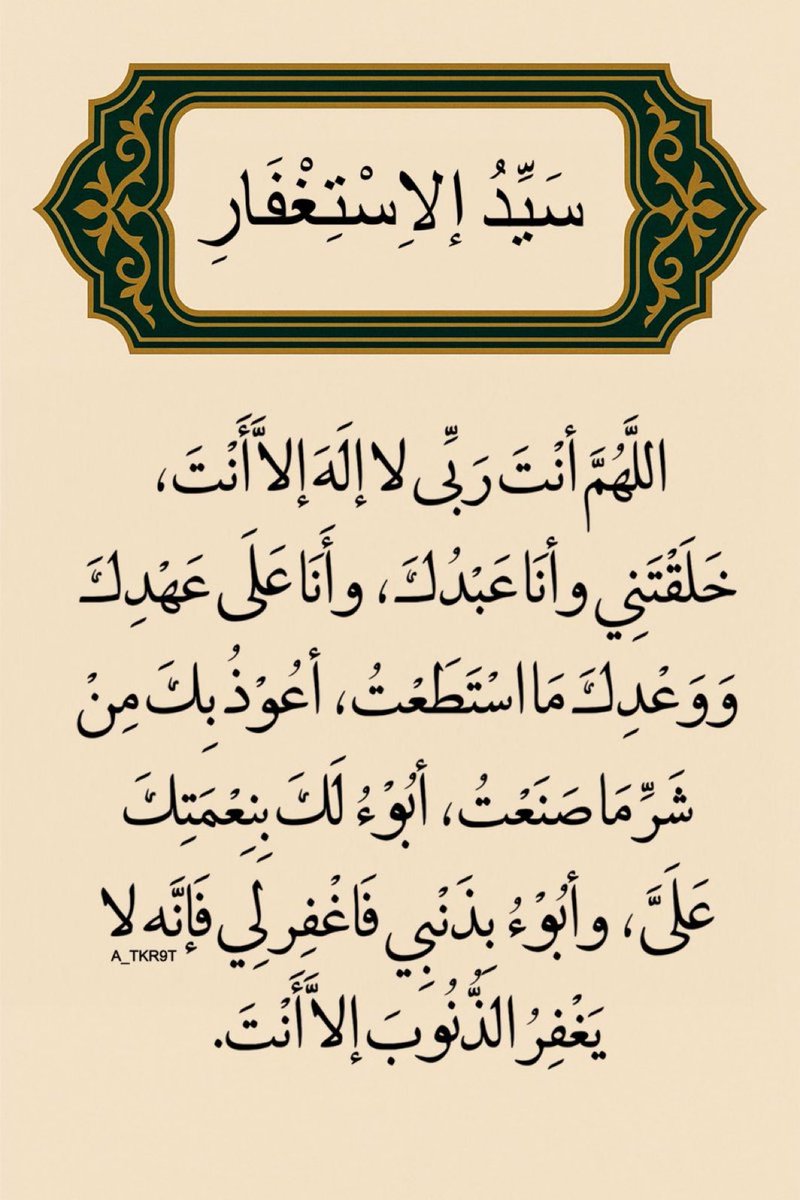 سَيِّدُ إلاِسْتِغْفَارِ
اللَّهُمَّ أنْتَ رَبِّى لا إلَهَ إلاَّ أَنْتَ،
خَلَقْتَنِي وأنَا عَبْدُكَ، وأَنَا عَلَى عَهْدِكَ
وَوَعْدِكَ مَا اسْتَطَعْتُ، أعُوْذُ بِكَ مِنْ
شَرِّ مَا صَنَعْتُ، أبُوْءُ لَكَ بِنِعْمَتِكَ
عَلَىَّ، وأبُوْءُ بِذَنْبِي فَاغْفِر لِي فَإنَّه لا
A_TKR9T
يَغْفِرُ الذُّنُوبَ إلاَّ أَنْتَ.